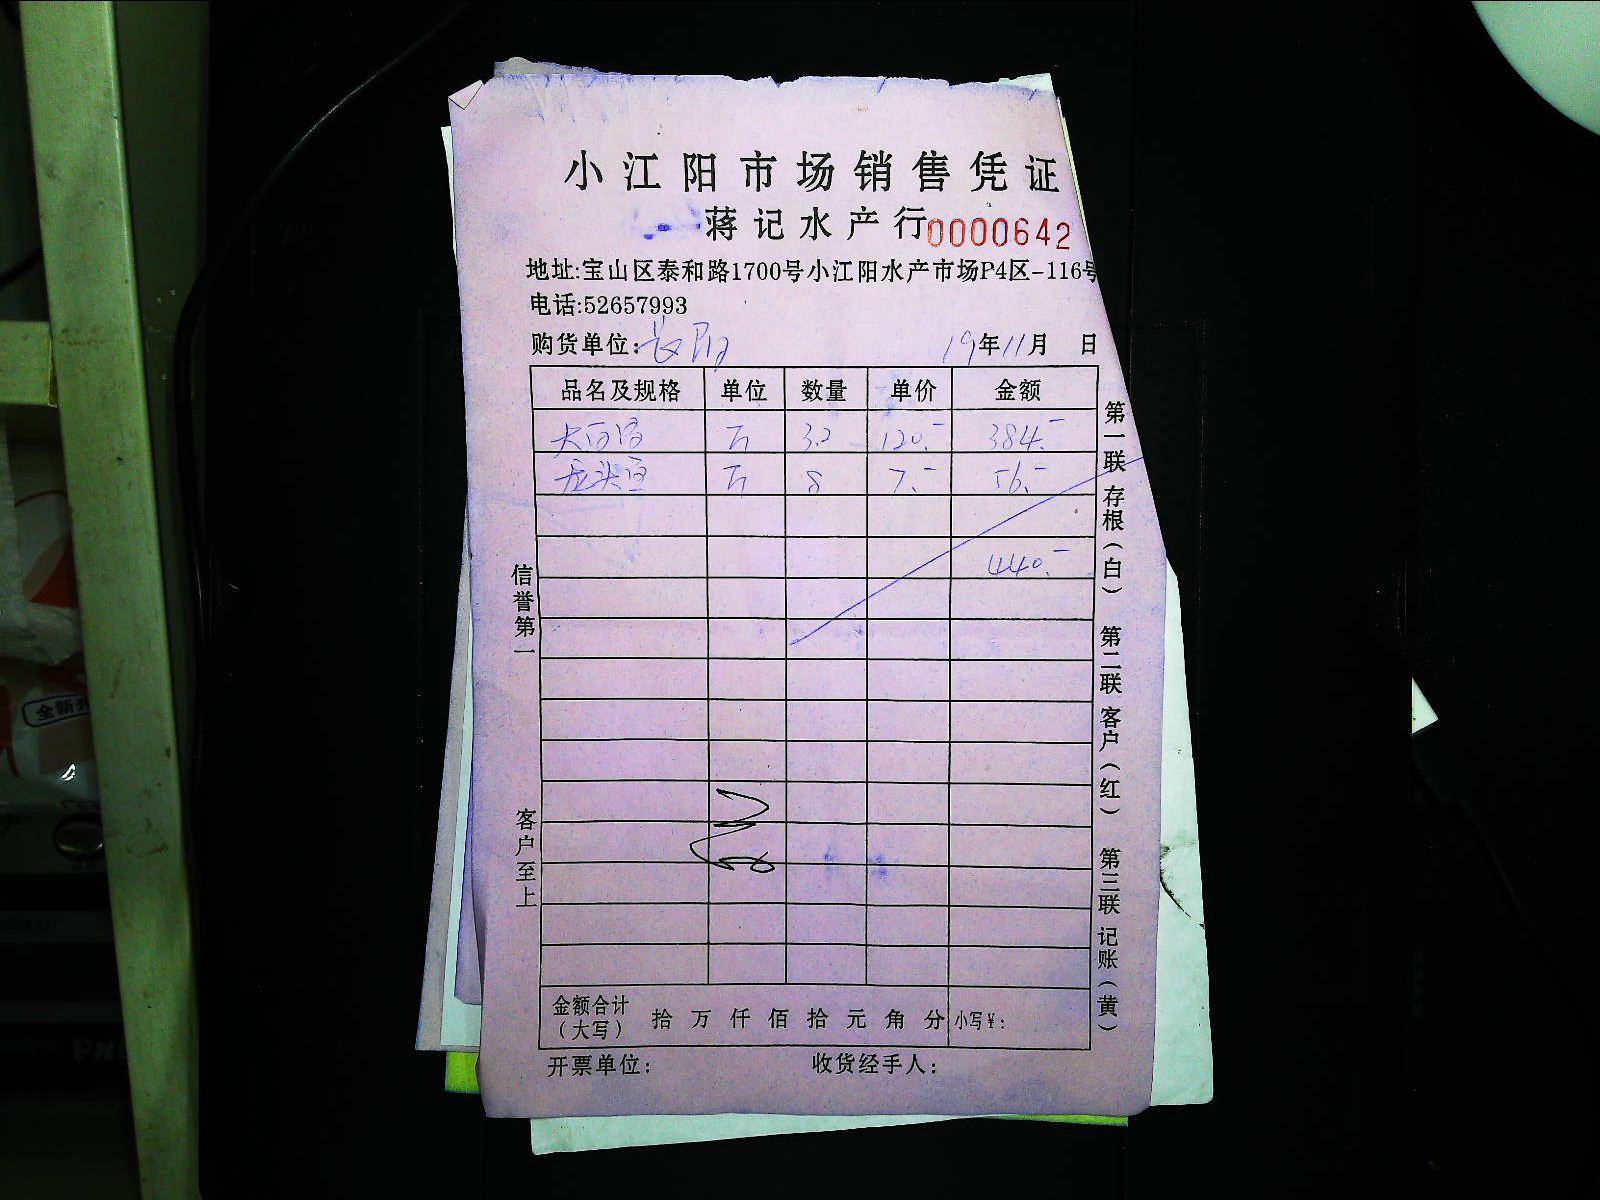 小江阳市场销售凭证
蒋记水产行 0000642
地址:宝山区泰和路1700号小江阳水产市场P4区-116号
电话:52657993
购货单位:长阳 19年11月 日
品名及规格 单位 数量 单价 金额
斤 3.2 120.- 384.-
龙头鱼 斤 8 7.- 56.-
440.-
信誉第一
客户至上
第一联 存根(白)
第二联 客户(红)
第三联 记账(黄)
金额合计(大写) 拾 万 仟 佰 拾 元 角 分 小写¥:
开票单位: 收货经手人:
全新